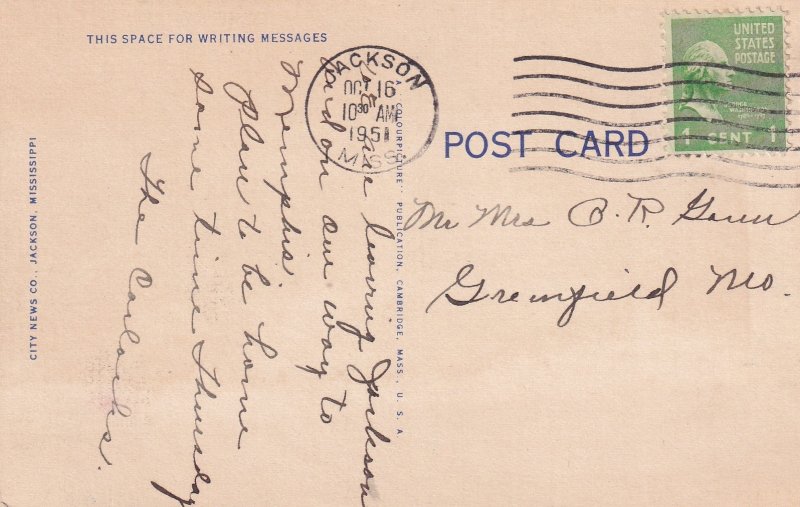 THIS SPACE FOR WRITING MESSAGES
CITY NEWS CO., JACKSON, MISSISSIPPI
JACKSON
OCT 16
10 30 AM
1951
MISS.
UNITED
STATES
POSTAGE
1 CENT 1
POST CARD
"A COLOURPICTURE" PUBLICATION, CAMBRIDGE, MASS., U. S. A
Mr Mrs
Greenfield Mo.
are leaving Jackson
and on our way to
Memphis
Plan to be home
some time Thursday
The